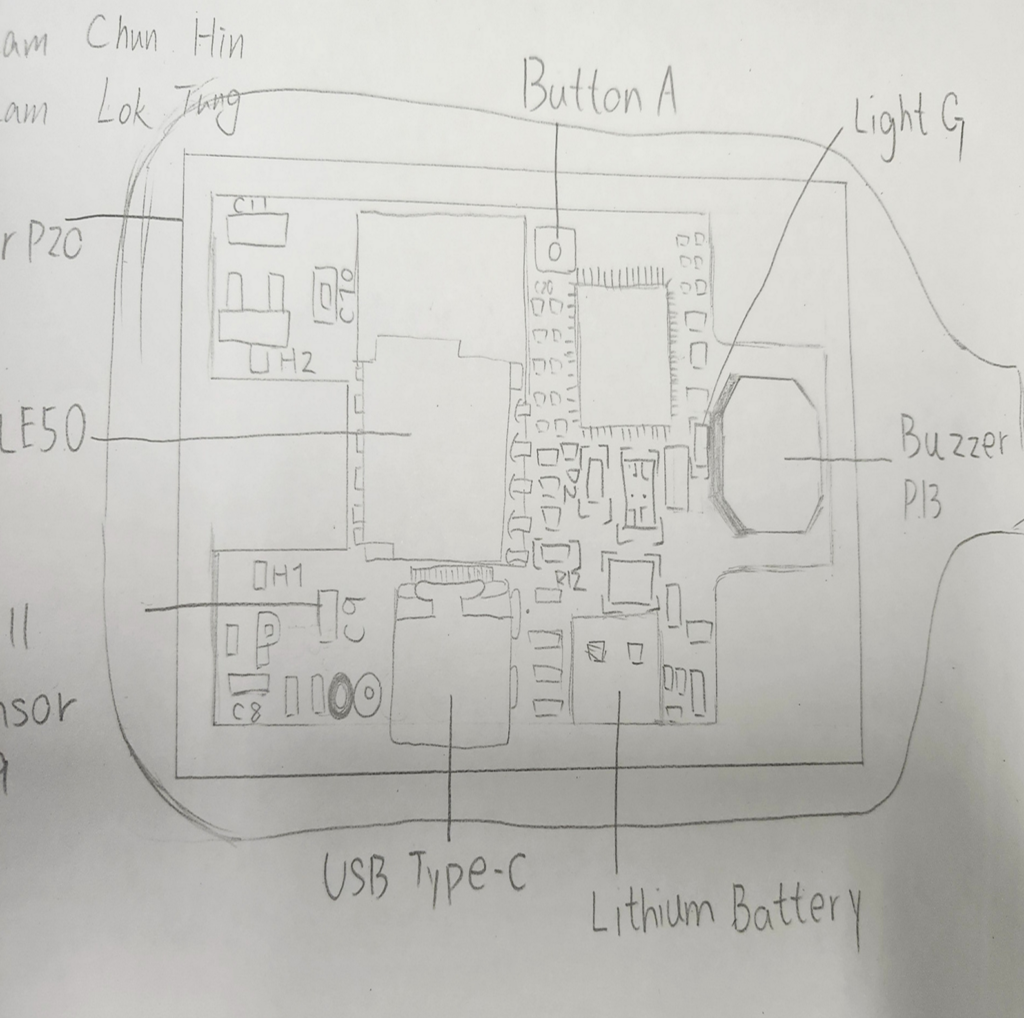 am Chun Hin
am Lok Tung
Button A
Light G
r P20
C11
C10
H2
C20
LE50
Buzzer
P.13
R2
R12
H1
C9
11
P
nsor
C8
9
USB Type-C
Lithium Battery